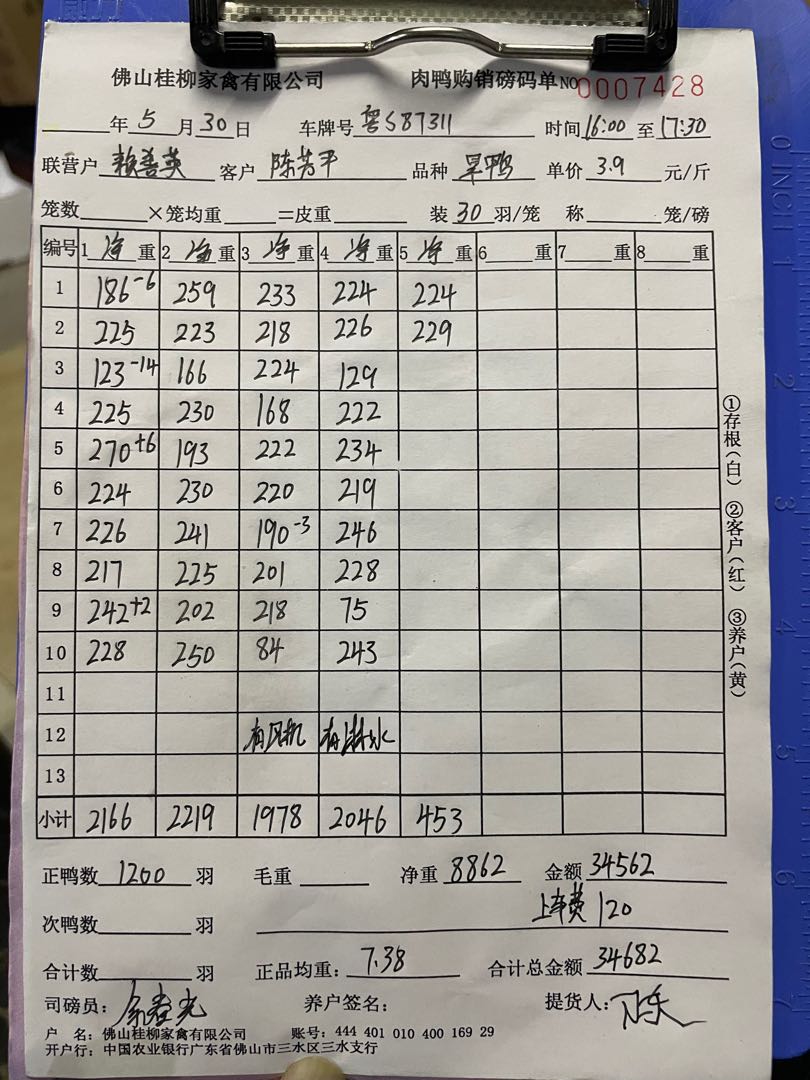 佛山桂柳家禽有限公司 肉鸭购销磅码单 NO 0007428
年 5 月 30 日 车牌号 粤S87311 时间 16:00 至 17:30
联营户 赖善英 客户 陈芳平 品种 旱鸭 单价 3.9 元/斤
笼数 ×笼均重 =皮重 装 30 羽/笼 称 笼/磅
编号 1 净 重 2 净 重 3 净 重 4 净 重 5 净 重 6 重 7 重 8 重
1 186-6 259 233 224 224
2 225 223 218 226 229
3 123-14 166 224 129
4 225 230 168 222
5 270+6 193 222 234
6 224 230 220 219
7 226 241 190-3 246
8 217 225 201 228
9 242+2 202 218 75
10 228 250 84 243
11
12 有风机 有淋水
13
小计 2166 2219 1978 2046 453
正鸭数 1200 羽 毛重 净重 8862 金额 34562
次鸭数 羽 上车费 120
合计数 羽 正品均重: 7.38 合计总金额 34682
司磅员: 养户签名: 提货人:
户 名: 佛山桂柳家禽有限公司 账号: 444 401 010 400 169 29
开户行: 中国农业银行广东省佛山市三水区三水支行
①存根(白) ②客户(红) ③养户(黄)
0 INCH 1
2
3
4
5
6
7